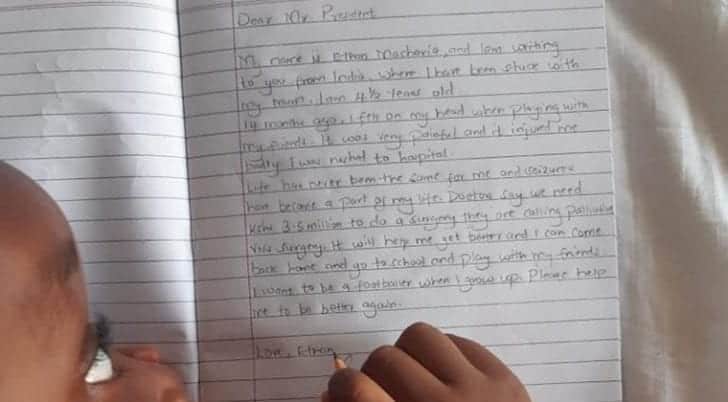 Dear Mr President
My name is Ethan Macharia, and Iam writing
to you from India, where I have been stuck with
my mum. Iam 4½ years old
14 months ago, I fell on my head when playing with
my friends. It was very painful and it injured me
badly. I was rushed to hospital.
Life has never been the same for me and seizures
have became a part of my life. Doctors say we need
Kshs 3.5 million to do a surgery they are calling Palliative
VNS surgery. It will help me get better and I can come
back home and go to school and play with my friends
I want to be a footballer when I grow up. Please help
me to be better again.
Love, Ethan